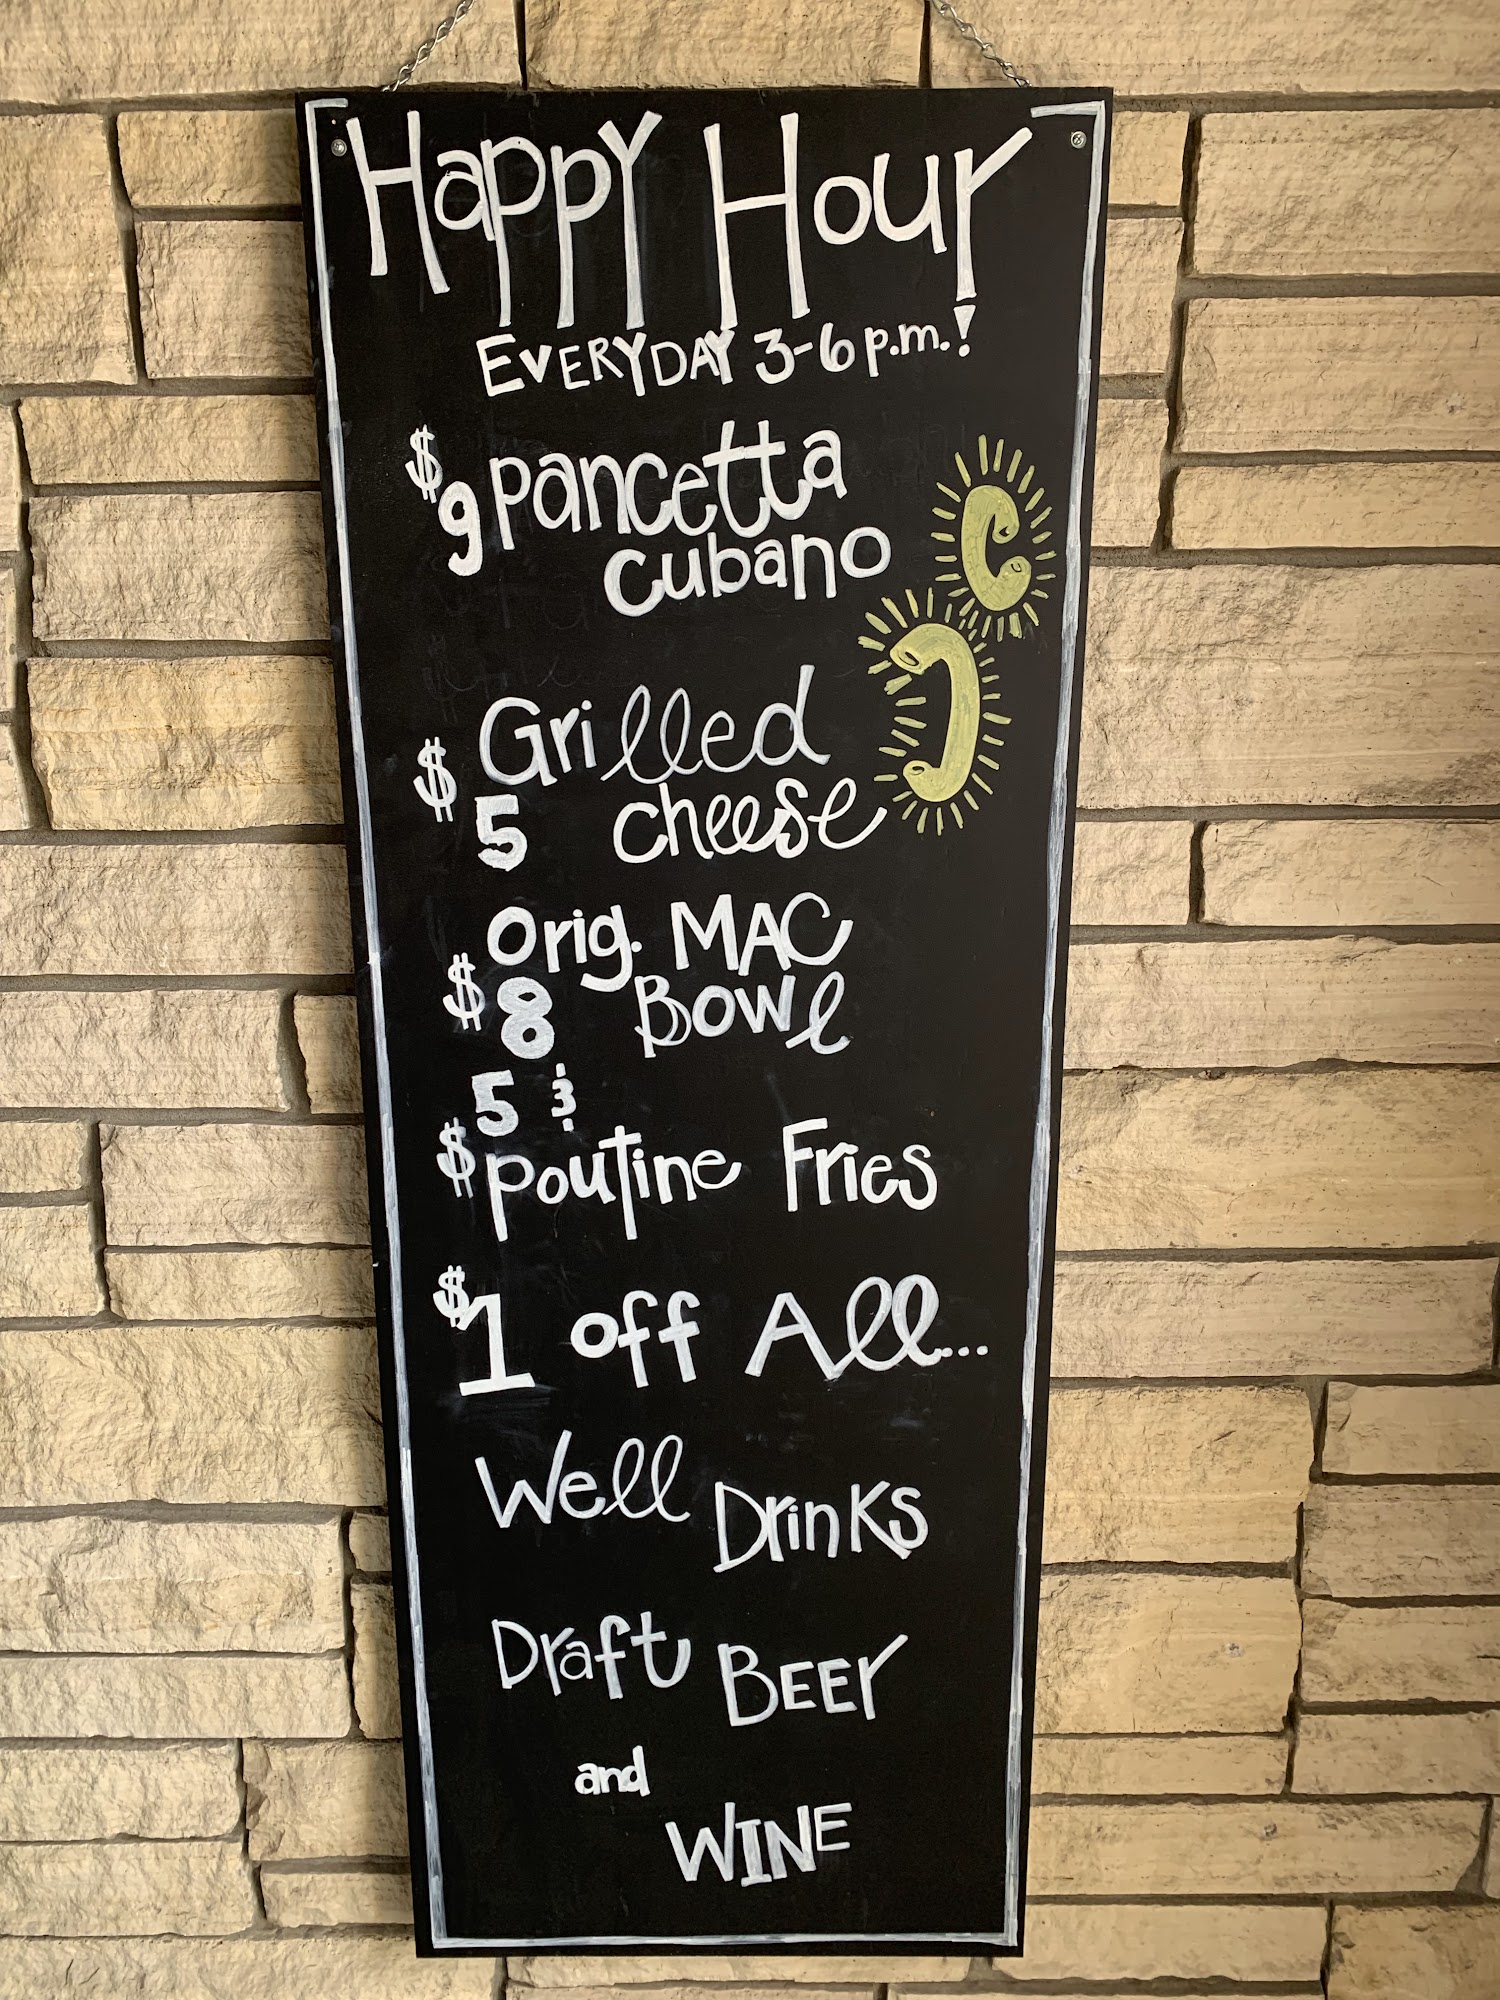 Happy Hour
EVERYDAY 3-6 p.m.!
$9 pancetta
cubano
Grilled
$5 cheese
Orig. MAC
$8 Bowl
5 &
$ Poutine Fries
$1 off All...
Well Drinks
Draft BEEr
and
WINE